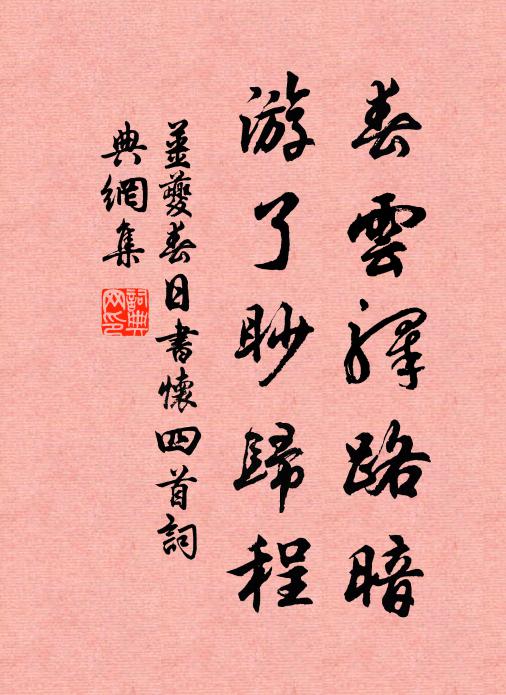 春雲驛路暗
游了眇歸程
姜夔春日書懷四首詞
典網集
詞典网印